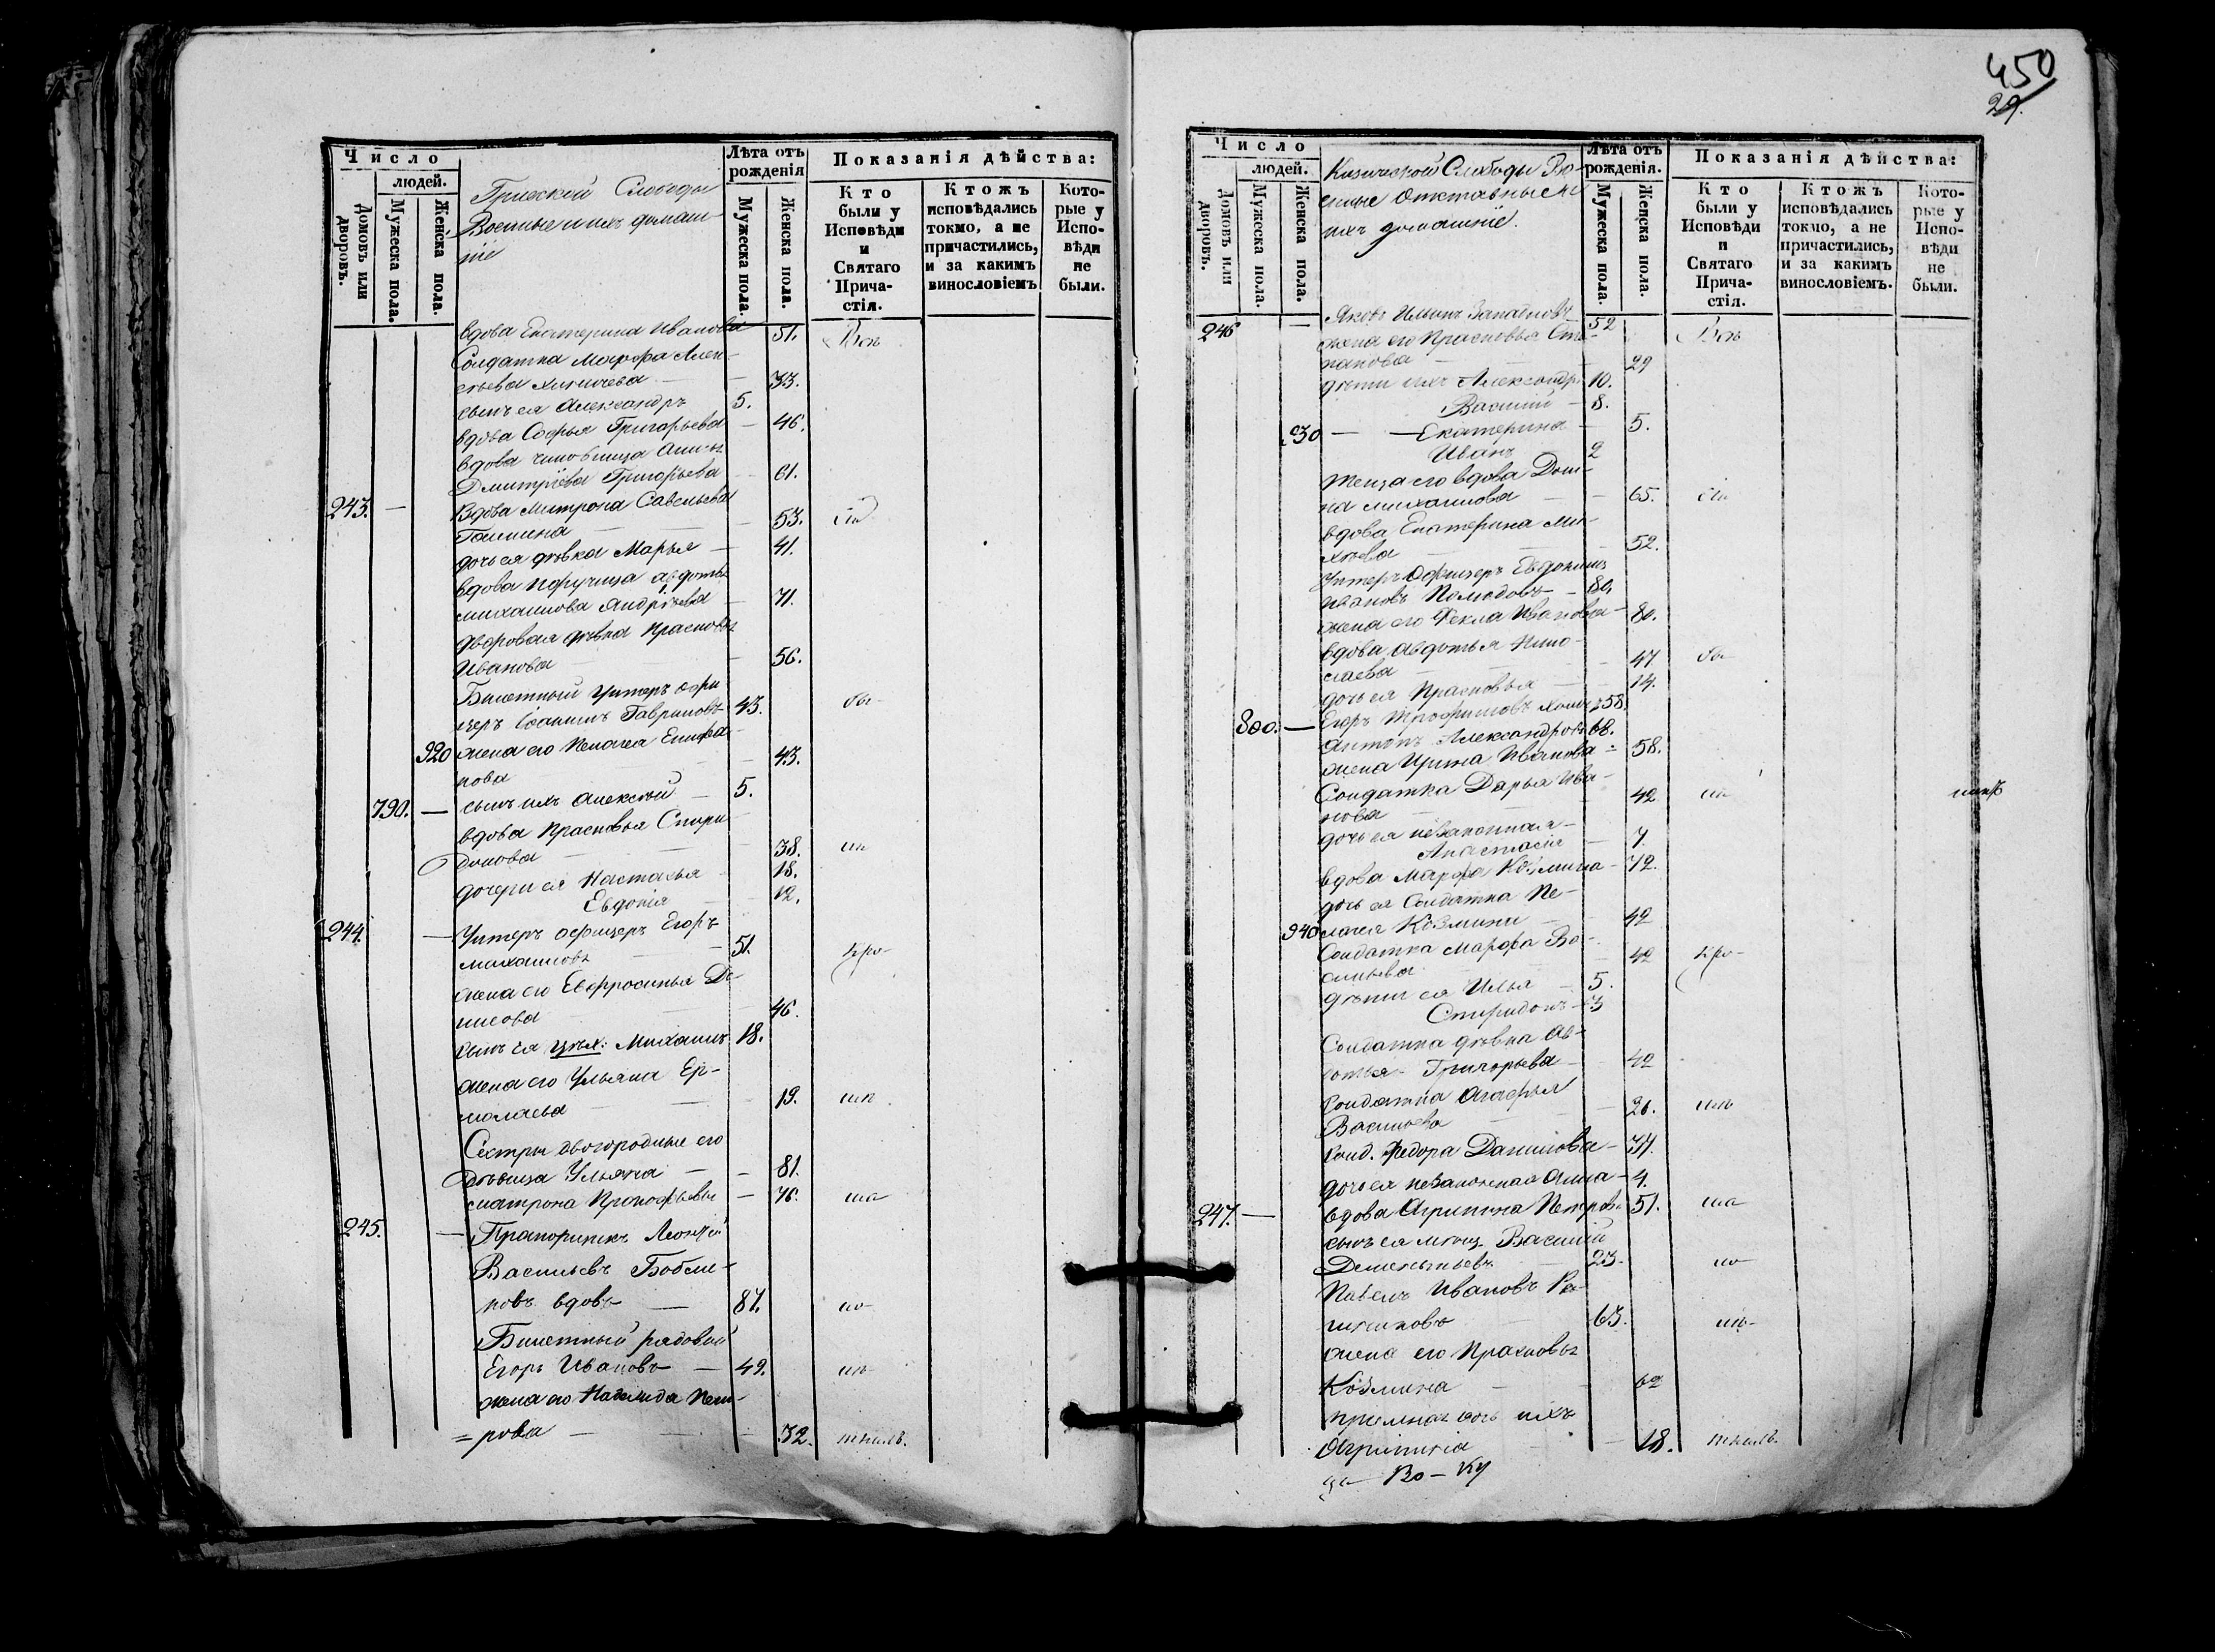 450
29.
Число
людей.
Домовъ или дворовъ.
Мужеска пола.
Женска пола.
Слободы
Военные и ихъ домаш-
ніе
Лѣта отъ рожденія
Мужеска пола.
Женска пола.
Показанія дѣйства:
Кто были у Исповѣди и Святаго Прича-стія.
Ктожъ исповѣдались токмо, а не причастились, и за какимъ винословіемъ
Кото-рые у Испо-вѣди не были.
вдова Екатерина Иванова 51.
Солдатка Марфа Алек-
сѣева 33.
сынъ ея Александръ 5.
вдова Софья Григорьева — 46.
вдова
Дмитріева Григорьева — 61.
243. — Вдова Митрона Савельева
53.
дочь ея дѣвка Марья — 41.
вдова
михаилова Андрѣева — 71.
дворовая дѣвка Прасковья
Иванова — 56.
Билетный Унтеръ офи-
церъ Гавриловъ 43. бы-
920 жена его Пелагея
нова — 43.
790. — сынъ ихъ Алексѣй — 5.
вдова Прасковья Спири-
донова — 38.
дочери ея Настасья — 18.
Евдокія — 12.
244. — Унтеръ офицеръ Егоръ
михаиловъ — 51.
жена его Евфросинья Де-
нисова — 46.
сынъ ея цех: Михаилъ 18.
жена его Ульяна Ер-
молаева — 19.
Сестры двоюродные его
дѣвица Ульяна — 81.
матрона Прокофьевы — 76.
245. — Прапорщикъ Леонтій
Васильевъ
новъ вдовъ — 87.
Билетный рядовой
Егоръ Ивановъ — 49.
жена его Наталида Пет-
=рова — 32.
Число
людей.
Домовъ или дворовъ.
Мужеска пола.
Женска пола.
Кизической Слободы Во-
енные Отставные и
ихъ домашніе.
Лѣта отъ рожденія.
Мужеска пола.
Женска пола.
Показанія дѣйства:
Кто были у Исповѣди и Святаго Прича-стія.
Ктожъ исповѣдались токмо, а не причастились, и за какимъ винословіемъ.
Кото-рые у Испо-вѣди не были.
246 — Яковъ Ильинъ 52
жена его Прасковья Сте-
панова 29
дѣти ихъ Александръ 10.
Василій — 8.
930 — Екатерина — 5.
Иванъ 2
теща его вдова Дом-
на михаилова — 65.
вдова Екатерина Ми-
хѣева — 52.
Унтеръ Офицеръ Евдокимъ
Ивановъ — 80.
жена его Фекла Иванова — 80.
вдова Авдотья Нико-
лаева — 47 бы
дочь ея Прасковья — 14.
800. — Егоръ Трофимовъ 58.
Антонъ Александровъ 68.
жена Ирина Иванова — 58.
Солдатка Дарья Ива-
нова — 42
дочь ея незаконная
Анастасія — 7.
вдова Марфа Козмина — 72.
дочь ея Солдатка Пе-
940 лагея Козмина — 42
Солдатка Марфа Ва-
сильева — 42
дѣти ея Илья — 5.
Спиридонъ — 3
Солдатка дѣвка Ав-
дотья Григорьева — 42
Солдатка Агафья
Васильева — 26.
Солд. Федора Данилова — 37.
дочь ея незаконная Анна — 4.
247. — вдова Агрипина Петрова 51.
сынъ ея мѣщ. Василій
Дементьевъ — 23.
Павелъ Ивановъ
63.
жена его Прасковья
Козмина — 62
приемная дочь ихъ
Агрипина — 18.